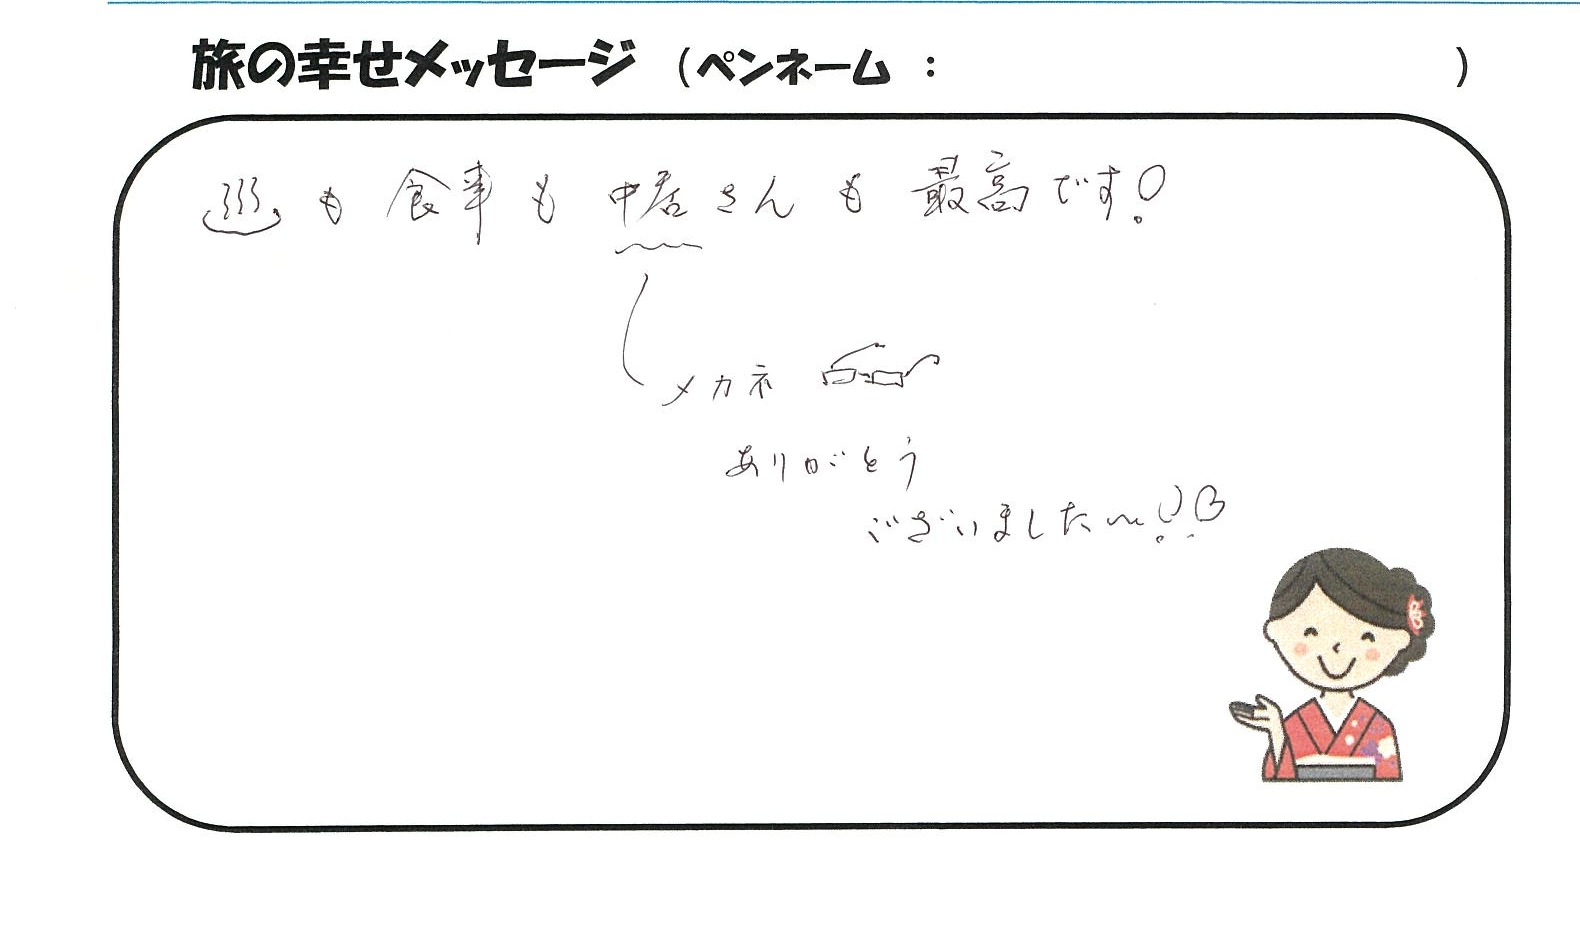 旅の幸せメッセージ （ペンネーム ： ）
♨も食事も中居さんも最高です!
メガネ
ありがとう
ございました〜!!